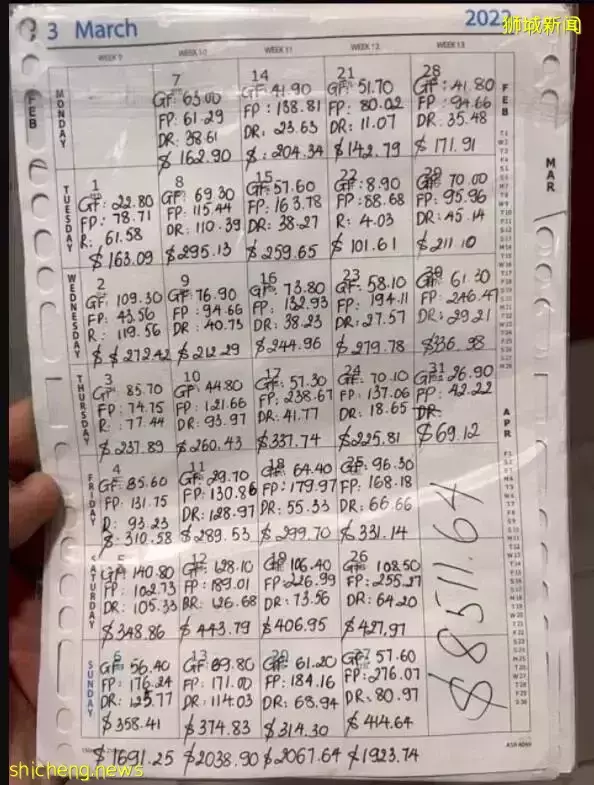 3 March
2022
狮城新闻
WEEK 9
WEEK 10
WEEK 11
WEEK 12
WEEK 13
FEB
MONDAY
7
GF: 63.00
FP: 61.29
DR: 38.61
$ 162.90
14
GF: 41.90
FP: 138.81
DR: 23.63
$: 204.34
21
GF: 51.70
FP: 80.02
DR: 11.07
$ 142.79
28
GF: 41.80
FP: 94.66
DR: 35.48
$ 171.91
FEB
MAR
TUESDAY
1
GF: 22.80
FP: 78.71
R: 61.58
$ 163.09
8
GF: 69.30
FP: 115.44
DR: 110.39
$ 295.13
15
GF: 57.60
FP: 163.78
DR: 38.27
$ 259.65
22
GF: 8.90
FP: 88.68
R: 4.03
$ 101.61
29
GF: 70.00
FP: 95.96
DR: 45.14
$ 211.10
WEDNESDAY
2
GF: 109.30
FP: 43.56
R: 119.56
$ $ 272.42
9
GF: 76.90
FP: 94.66
DR: 40.73
$ 212.29
16
GF: 73.80
FP: 132.93
DR: 38.23
$ 244.96
23
GF: 58.10
FP: 194.11
DR: 27.57
$ 279.78
30
GF: 61.30
FP: 246.47
DR: 29.21
$336.98
THURSDAY
3
GF: 85.70
FP: 74.75
R: 77.44
$ 237.89
10
GF: 44.80
FP: 121.66
DR: 93.97
$ 260.43
17
GF: 57.30
FP: 238.67
DR: 41.77
$ 337.74
24
GF: 70.10
FP: 137.06
DR: 18.65
$ 225.81
31
GF: 26.90
FP: 42.22
DR:
$ 69.12
APR
FRIDAY
4
GF: 85.60
FP: 131.75
R: 93.23
$: 310.58
11
GF: 29.70
FP: 130.86
DR: 128.97
$ 289.53
18
GF: 64.40
FP: 179.97
DR: 55.33
$ 299.70
25
GF: 96.30
FP: 168.18
DR: 66.66
$ 331.14
SATURDAY
5
GF: 140.80
FP: 102.73
DR: 105.33
$ 348.86
12
GF: 128.10
FP: 189.01
DR: 126.68
$ 443.79
19
GF: 106.40
FP: 226.99
DR: 73.56
$ 406.95
26
GF: 108.50
FP: 255.27
DR: 64.20
$ 427.97
$8511.64
SUNDAY
6
GF: 56.40
FP: 176.24
DR: 125.77
$ 358.41
13
GF: 89.80
FP: 171.00
DR: 114.03
$ 374.83
20
GF: 61.20
FP: 184.16
DR: 68.94
$ 314.30
27
GF: 57.60
FP: 276.07
DR: 80.97
$ 414.64
$1691.25
$2038.90
$2067.64
$1923.74
shicheng.news